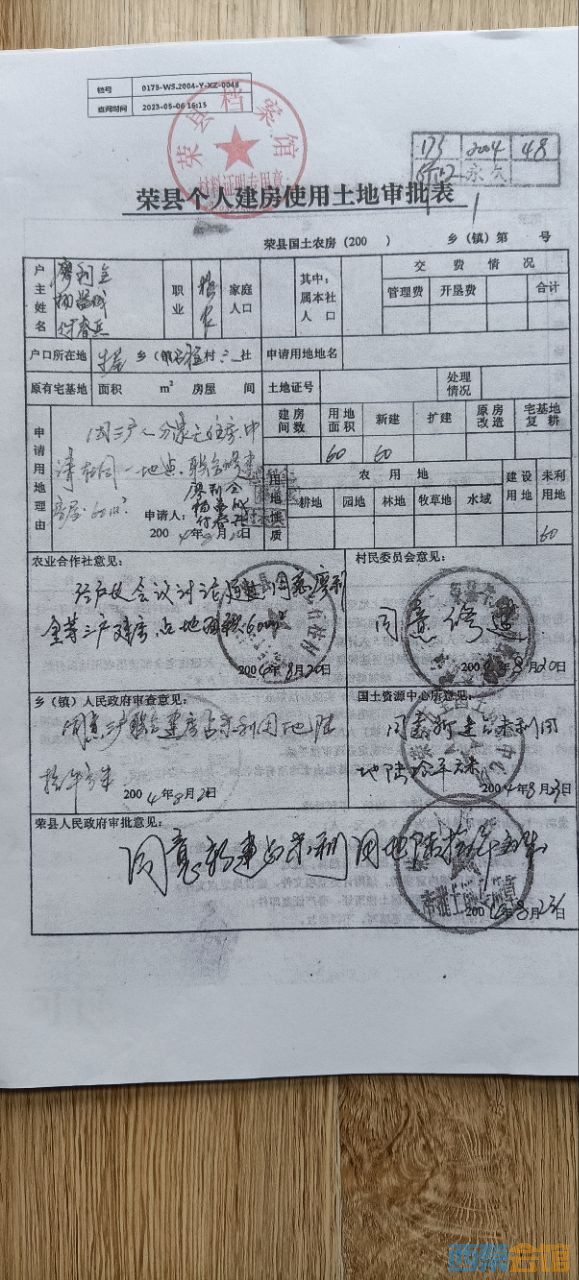 档号 0175-WS.2004-Y-XZ-0048
查阅时间 2023-05-06 16:15
荣县档案馆
材料证明专用章
175 2004 48
永久
荣县个人建房使用土地审批表
荣县国土农房(200 )乡(镇)第 号
户主姓名 廖利全
职业
家庭人口
其中:属本社人口
交费情况
管理费 开垦费 合计
户口所在地 乡(镇) 村 社 申请用地地名
原有宅基地 面积 m² 房屋 间 土地证号 处理情况
申请用地理由
因三户人分家无住房.申
请在同一地点.联合修建
房屋.60m².
廖利全
申请人:
2004年8月20日
建房间数 用地面积 新建 扩建 原房改造 宅基地复耕
60 60
用地性质
农用地 建设用地 未利用地
耕地 园地 林地 牧草地 水域
60
农业合作社意见:
经户代会议讨论通过同意廖利
全等三户建房占地面积60m².
2004年8月20日
村民委员会意见:
同意修建
2004年8月20日
乡(镇)人民政府审查意见:
同意三户联合建房占未利用地陆
拾平方米
2004年8月2 日
国土资源中心所意见:
同意新建占未利用
地陆拾平方米
2004年8月23日
荣县人民政府审批意见:
同意新建占未利用地陆拾平方米
审批工作专用章
2004年8月23日